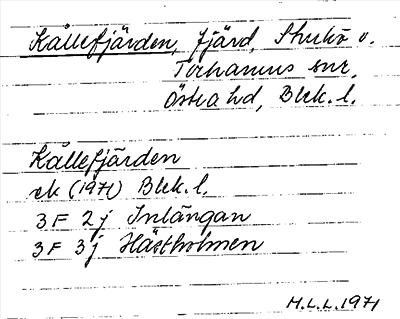 Källefjärden, fjärd, Sturkö o.
Torhamns snr,
Östra hd, Blek. l.
Källefjärden
ek (1971) Blek. l.
3F 2j Inlängan
3F 3j Hästholmen
H.L.L. 1971